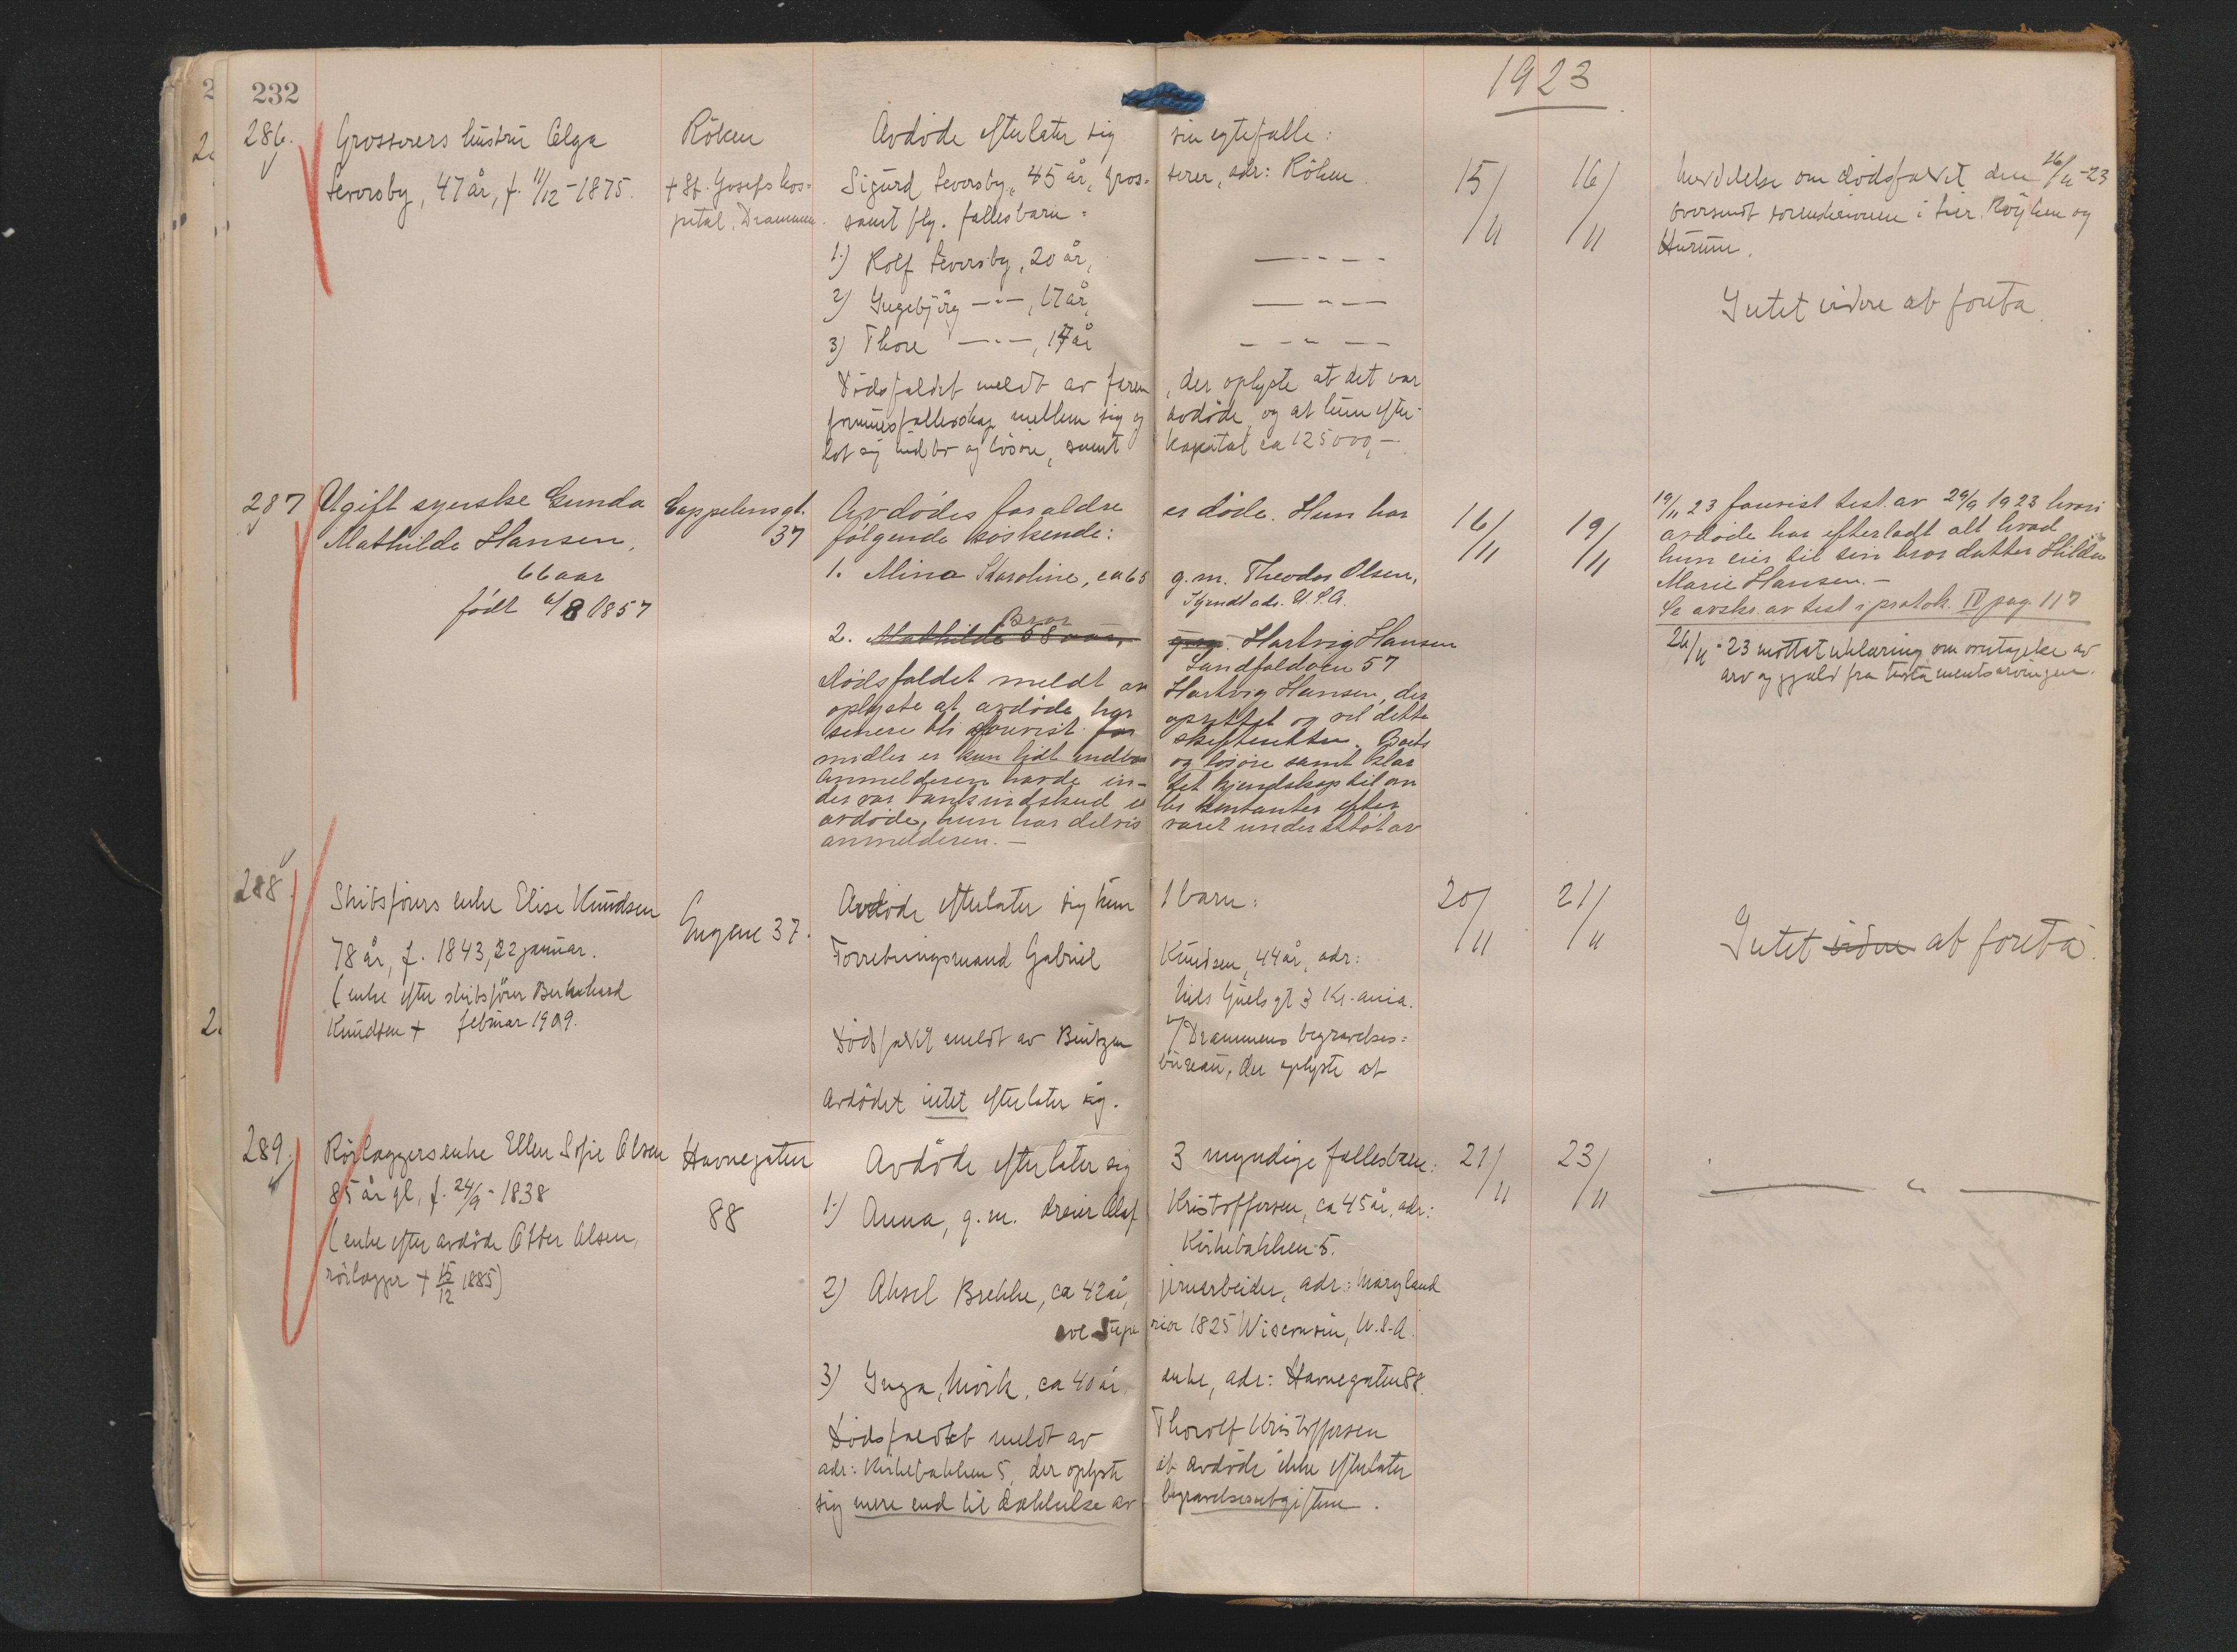 232
1923
286.
Grosserers hustru Olga
Leversby, 47 år, f. 11/12 - 1875.
Röken
+ St. Josefs hos=
pital, Drammen.
Avdöde efterlater sig sin egtefælle:
Sigurd Leversby, 45 år, gros= serer, adr: Röken.
samt flg. fællesbarn:
1) Rolf Leversby, 20 år, — " —
2) Ingebjörg — " —, 17 år, — " —
3) Thore — " —, 14 år — " —
Dödsfaldet meldt av faren, der oplyste at det var
formuesfællesskap mellem sig og avdöde, og at hun efter-
lot sig indbo og lösöre, samt kapital ca 125000,-
15/11
16/11
Meddelelse om dödsfaldet den 26/11-23
oversendt sorenskriveren i Lier, Röyken og
Hurum.
Intet videre at foreta.
287
Ugift syerske Gunda
Mathilde Hansen,
66 aar
født 6/8 1857
Cappelensgt.
37
Avdödes forældre er döde. Hun har
følgende søskende:
1. Mina Karoline, ca 65 g.m. Theodor Olsen,
Ukjendt adr. U.S.A.
Bror
2. Mathilde 58 aar, g.m. Hartvig Hansen
Landfaldøen 57
Dödsfaldet meldt av Hartvig Hansen, der
oplyste at avdöde har oprettet og vil dette
senere bli fremvist for skifteretten. Boets
midler er kun lidt indbo og løsøre samt klær
Anmelderen havde in- tet kjendskap til om
der var bankindskud el ler kontanter efter
avdøde, hun har delvis været understøttet av
anmelderen. —
16/11
19/11
19/11 23 fremvist test. av 29/9 1923 hvori
avdøde har efterladt alt hvad
hun eier til sin brors datter Hilda
Marie Hansen. -
Se avskr. av test i protok. IV pag. 117
26/11-23 mottat erklæring om overtagelse av
arv og gjæld fra testamentsarvingen.
288.
Skibsförers enke Elise Knudsen
78 år, f. 1843, 22 januar.
(enke efter skibsförer Bernhard
Knudsen + februar 1909.
Engene 37.
Avdöde efterlater sig kun 1 barn:
Forretningsmand Gabriel Knudsen, 44 år, adr:
Niels Juels gt 3 Kr.ania.
Dödsfaldet meldt av Bentzen v/ Drammens begravelses=
bureau, der oplyste at
avdödet intet efterlater sig.
20/11
21/11
Intet videre at foreta.
289.
Rörlæggersenke Ellen Sofie Olsen
85 år gl, f. 24/9 - 1838
(enke efter avdöde Otter Olsen,
rörlægger + 15/12 1885)
Havnegaten
88
Avdöde efterlater sig 3 myndige fællesbarn:
1) Anna, g.m. dreier Olaf Kristoffersen, ca 45 år, adr:
Kirkebakken 5.
2) Aksel Brekke, ca 42 år, jernarbeider, adr: Maryland
ave Supe rior 1825 Wisconsin, U.S.A.
3) Inga Mörk, ca 40 år, enke, adr: Havnegaten 88.
Dödsfaldet meldt av Thorolf Kristoffersen
adr: Kirkebakken 5, der oplyste at avdöde ikke efterlater
sig mere end til dækkelse av begravelsesutgiftene.
21/11
23/11
— " —